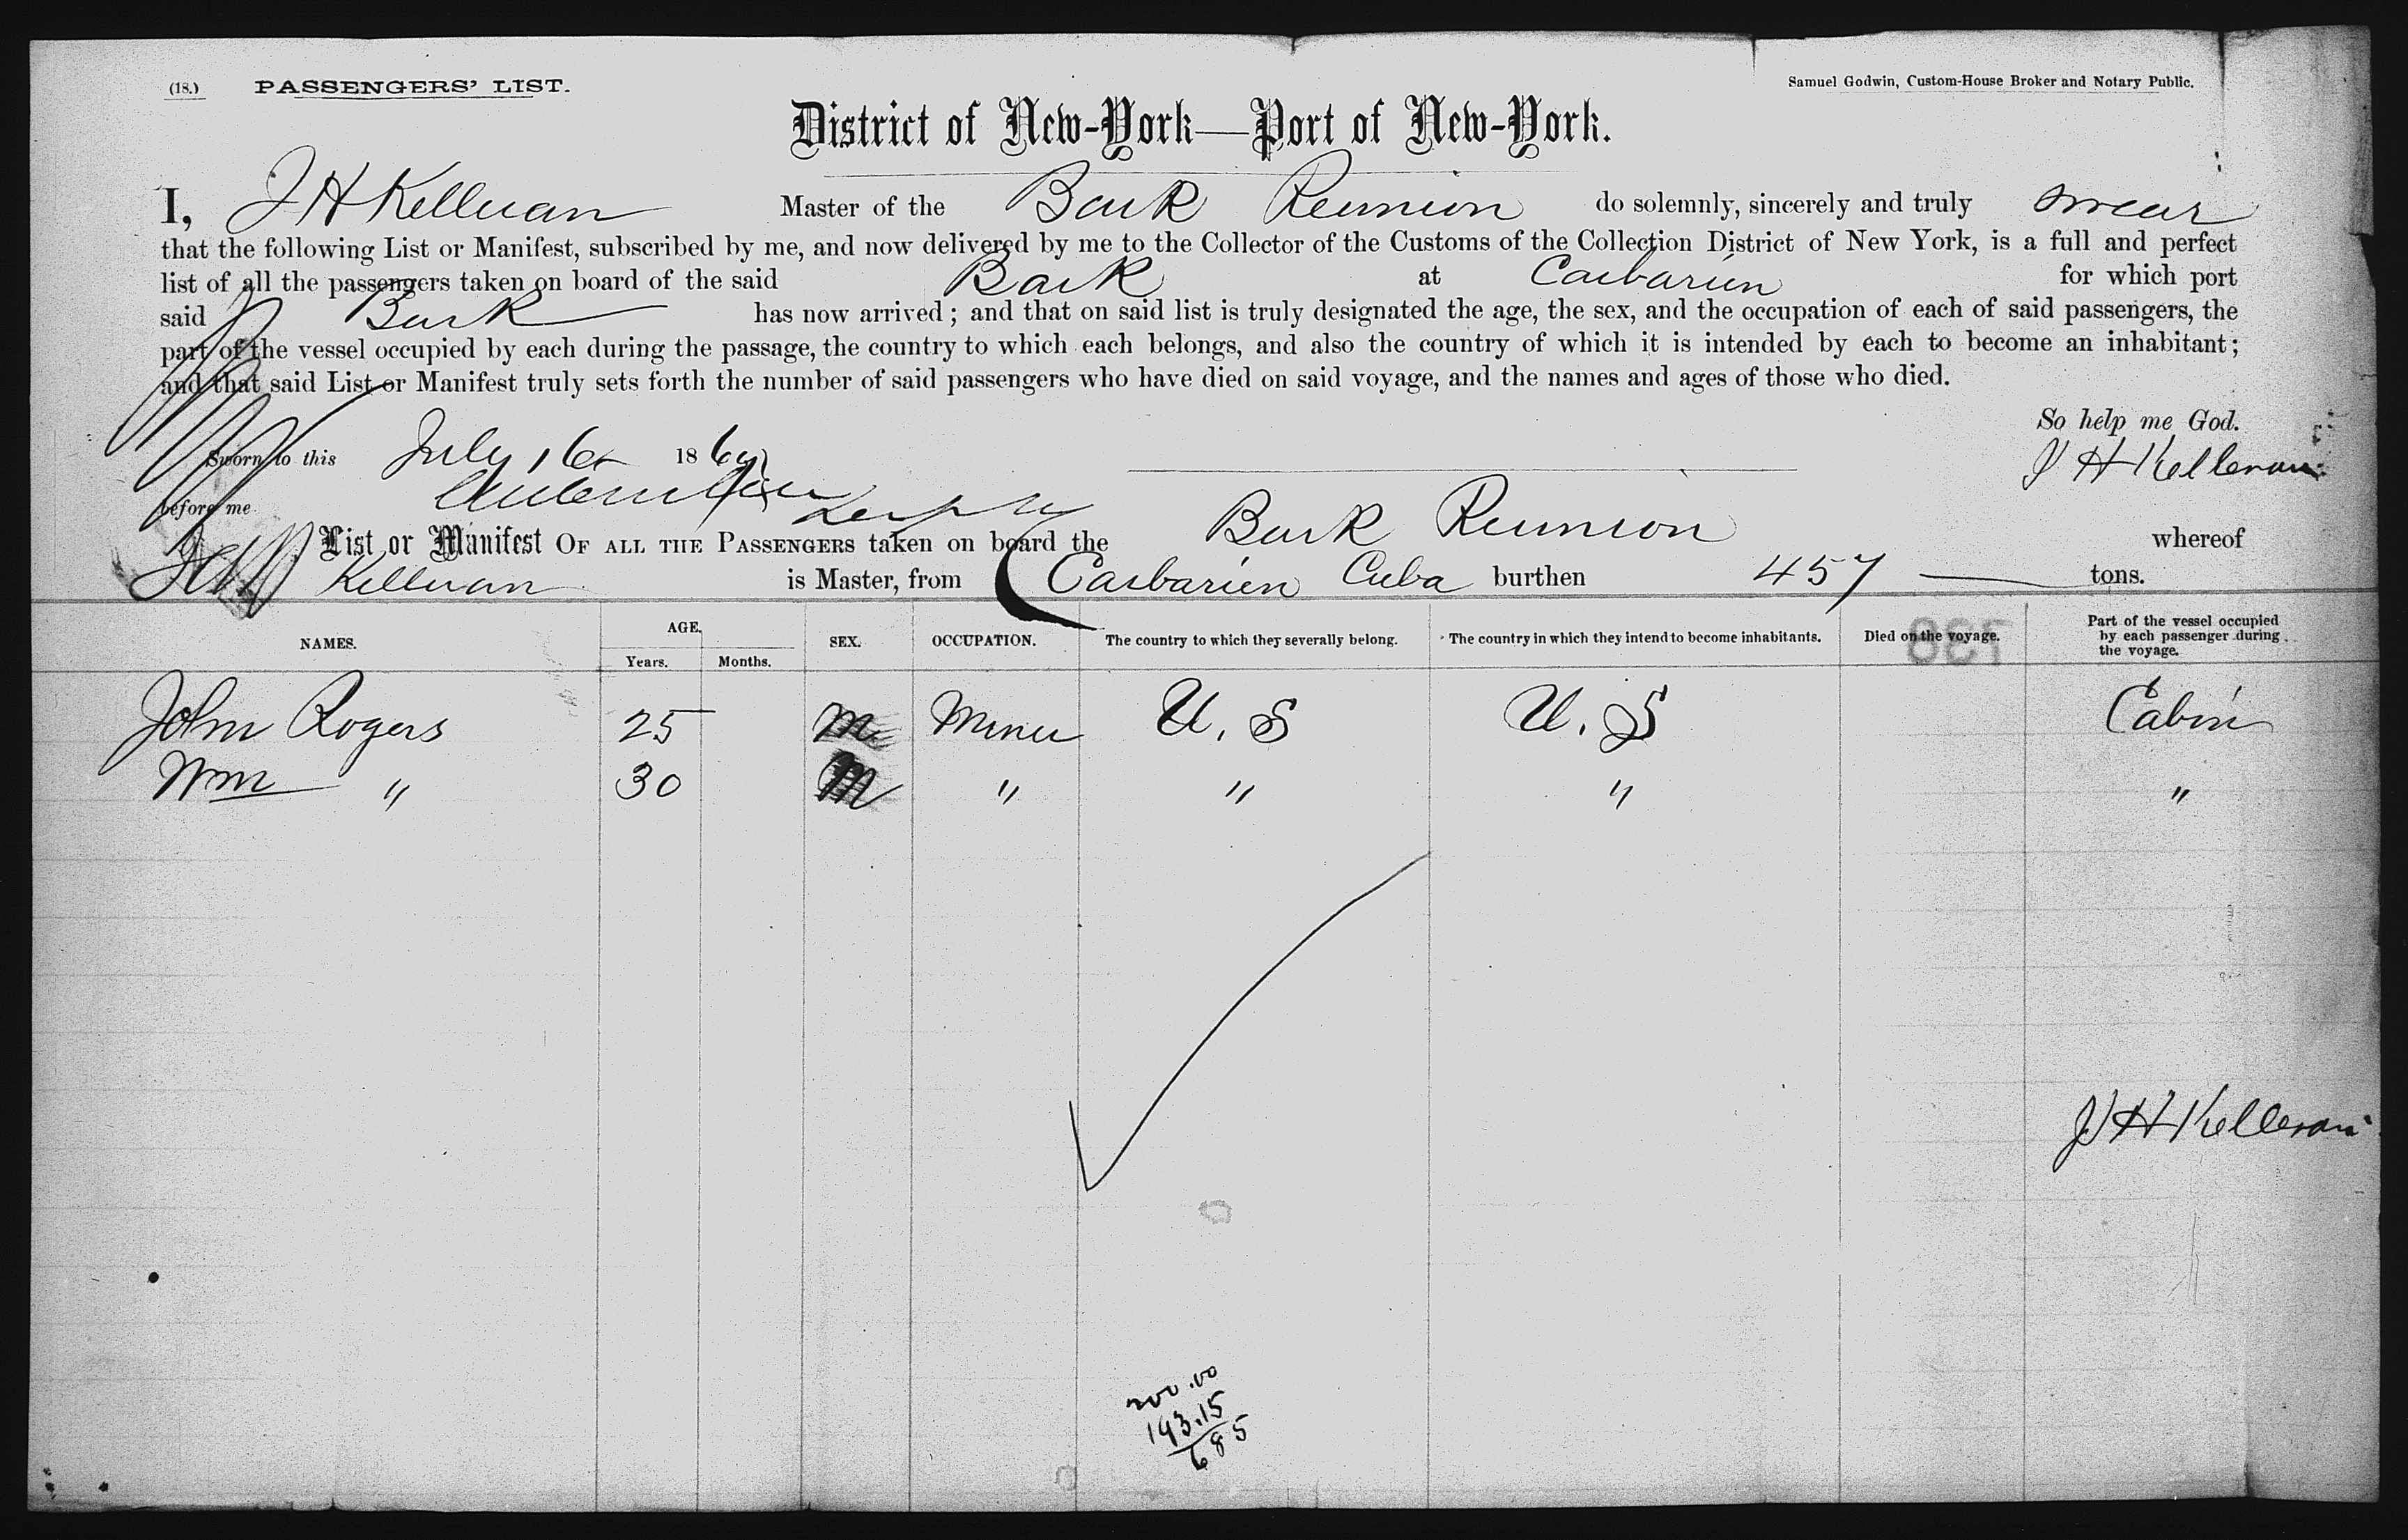 (18.) PASSENGERS' LIST.
Samuel Godwin, Custom-House Broker and Notary Public.
District of New-York—Port of New-York.
I, J H Kelleran Master of the Bark Reunion do solemnly, sincerely and truly swear
that the following List or Manifest, subscribed by me, and now delivered by me to the Collector of the Customs of the Collection District of New York, is a full and perfect
list of all the passengers taken on board of the said Bark at Caibarien for which port
said Bark has now arrived; and that on said list is truly designated the age, the sex, and the occupation of each of said passengers, the
part of the vessel occupied by each during the passage, the country to which each belongs, and also the country of which it is intended by each to become an inhabitant;
and that said List or Manifest truly sets forth the number of said passengers who have died on said voyage, and the names and ages of those who died.
So help me God.
Sworn to this July 16 186
J H Kelleran
before me
List or Manifest OF ALL THE PASSENGERS taken on board the Bark Reunion whereof
Kelleran is Master, from Caibarien Cuba burthen 457 tons.
NAMES. AGE. Years. Months. SEX. OCCUPATION. The country to which they severally belong. The country in which they intend to become inhabitants. Died on the voyage. Part of the vessel occupied by each passenger during the voyage.
John Rogers 25 M Miner U. S U. S Cabin
Wm " 30 M " " " "
J H Kelleran
200.00
193.15
685